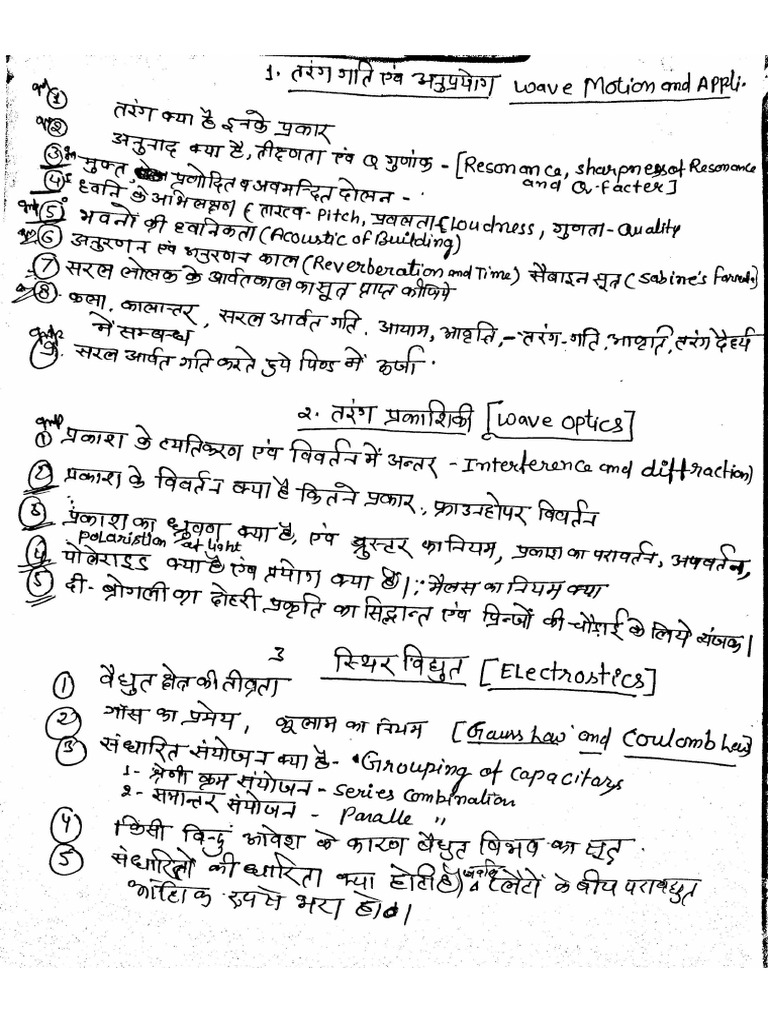 1. तरंग गति एवं अनुप्रयोग Wave Motion and Appli.
① तरंग क्या है इनके प्रकार
② अनुनाद क्या है, तीक्ष्णता एवं Q गुणांक - [Resonance, sharpness of Resonance and Q-facter]
③ मुक्त प्रणोदित व अवमन्दित दोलन -
④ ध्वनि के अभिलक्षण { तारत्व - Pitch, प्रबलता { Loudness, गुणता - Quality
⑤ भवनों की ध्वनिकता (Acoustic of Building)
⑥ अनुरणन एवं अनुरणन काल (Reverberation and Time) सैबाइन सूत्र (Sabine's
⑦ सरल लोलक के आर्वतकाल का सूत्र प्राप्त कीजिये
⑧. कला, कालान्तर, सरल आर्वत गति, आयाम, आवृत्ति, - तरंग-गति, आवृति, तरंग दैर्ध्य
में सम्बन्ध
⑨. सरल आर्वत गति करते हुये पिण्ड में ऊर्जा.
२. तरंग प्रकाशिकी [Wave Optics]
① प्रकाश के व्यतिकरण एवं विवर्तन में अन्तर - Interference and diffraction)
② प्रकाश के विवर्तन क्या है कितने प्रकार, फ्राउनहोपर विवर्तन
③ प्रकाश का ध्रुवण क्या है, एवं ब्रुस्टर का नियम, प्रकाश का परावर्तन, अपवर्तन,
Polaristion at light
④ पोलेराइड क्या है एंव प्रयोग क्या है। मैलस का नियम क्या
⑤ दी-ब्रोगली का दोहरी प्रकृति का सिद्धान्त एंव फ्रिन्जों की चौड़ाई के लिये व्यंजक।
3 स्थिर विद्युत [Electrostics]
① वैद्युत क्षेत्र की तीव्रता
② गॉस का प्रमेय, कूलाम का नियम [Gauss Law and Coulomb Law]
③ संधारित संयोजन क्या है - Grouping of Capacitars
1- श्रेणी क्रम संयोजन - Series Combination
2- समान्तर संयोजन - Paralle "
④ किसी विन्दु आवेश के कारण वैद्युत विभव का सूत्र.
⑤ संधारित्रों की धारिता क्या होती है, जबकि प्लेटों के बीच परावैद्युत
आंशिक रूप से भरा हो।